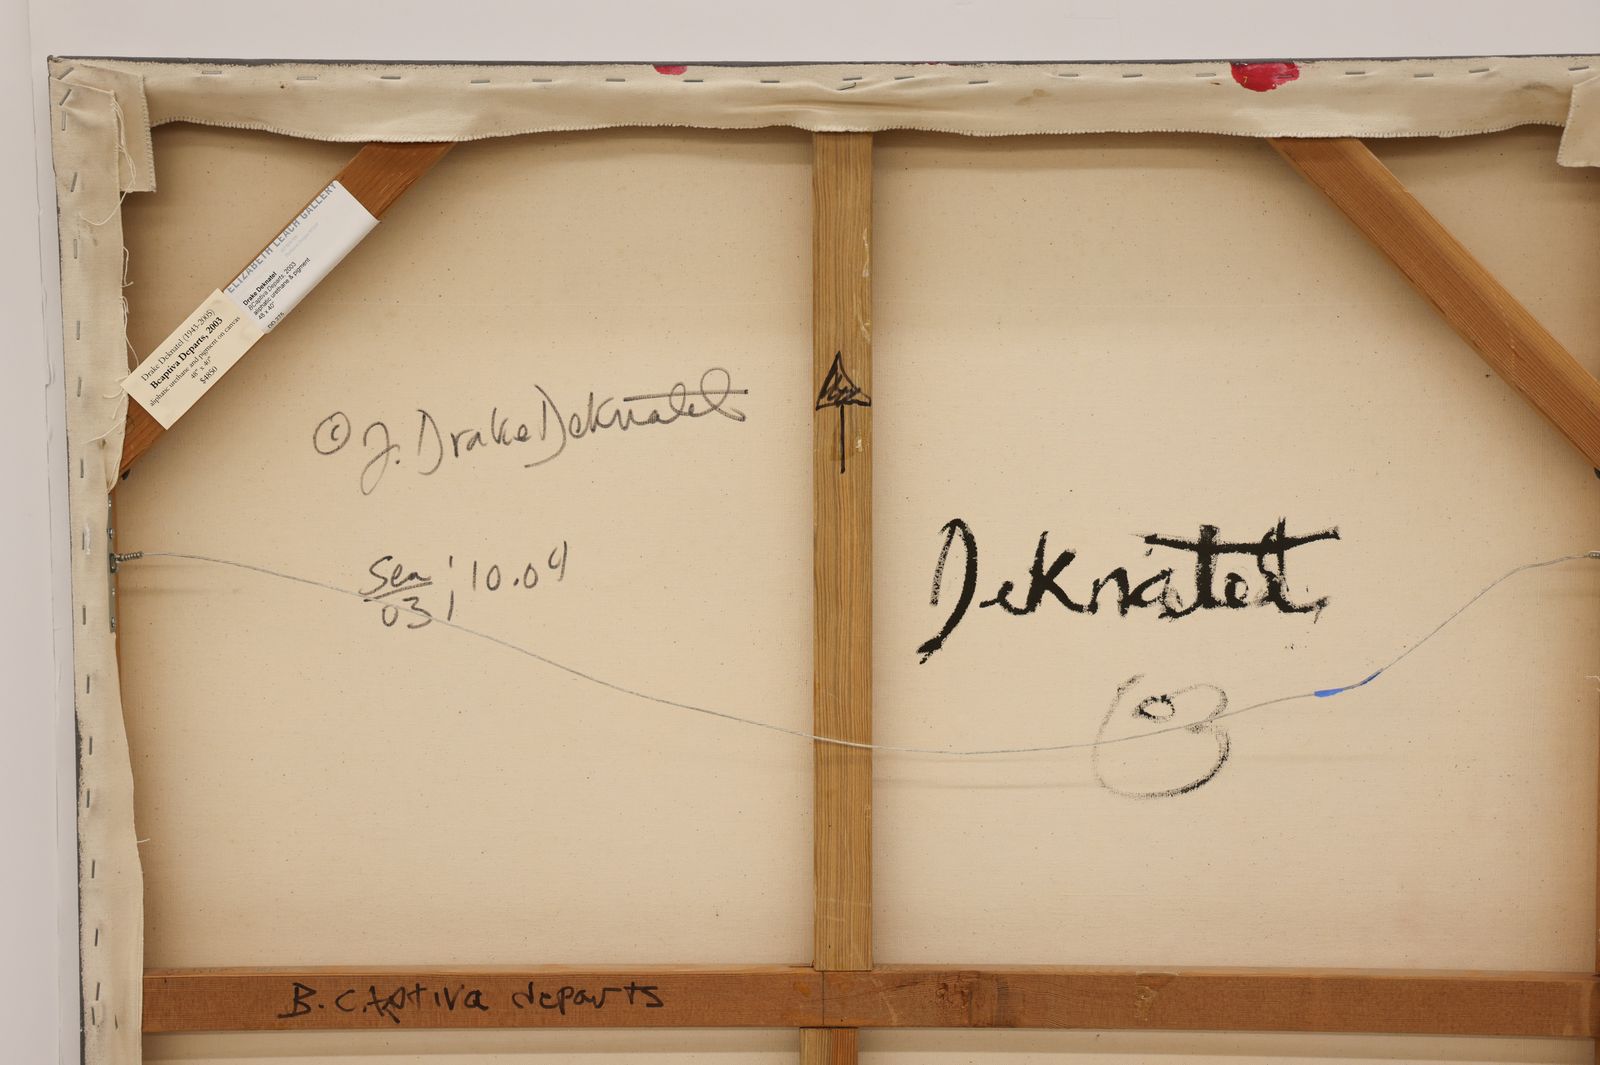 ELIZABETH LEACH GALLERY
Drake Deknatel
BCaptiva Departs, 2003
aliphatic urethane & pigment
48 x 40"
Drake Deknatel (1943-2005)
Bcaptiva Departs, 2003
aliphatic urethane and pigment on canvas
48" x 40"
$4850
© J. Drake Deknatel
Sea ; 10.04
03
Deknatel
03
B. CAptiva departs